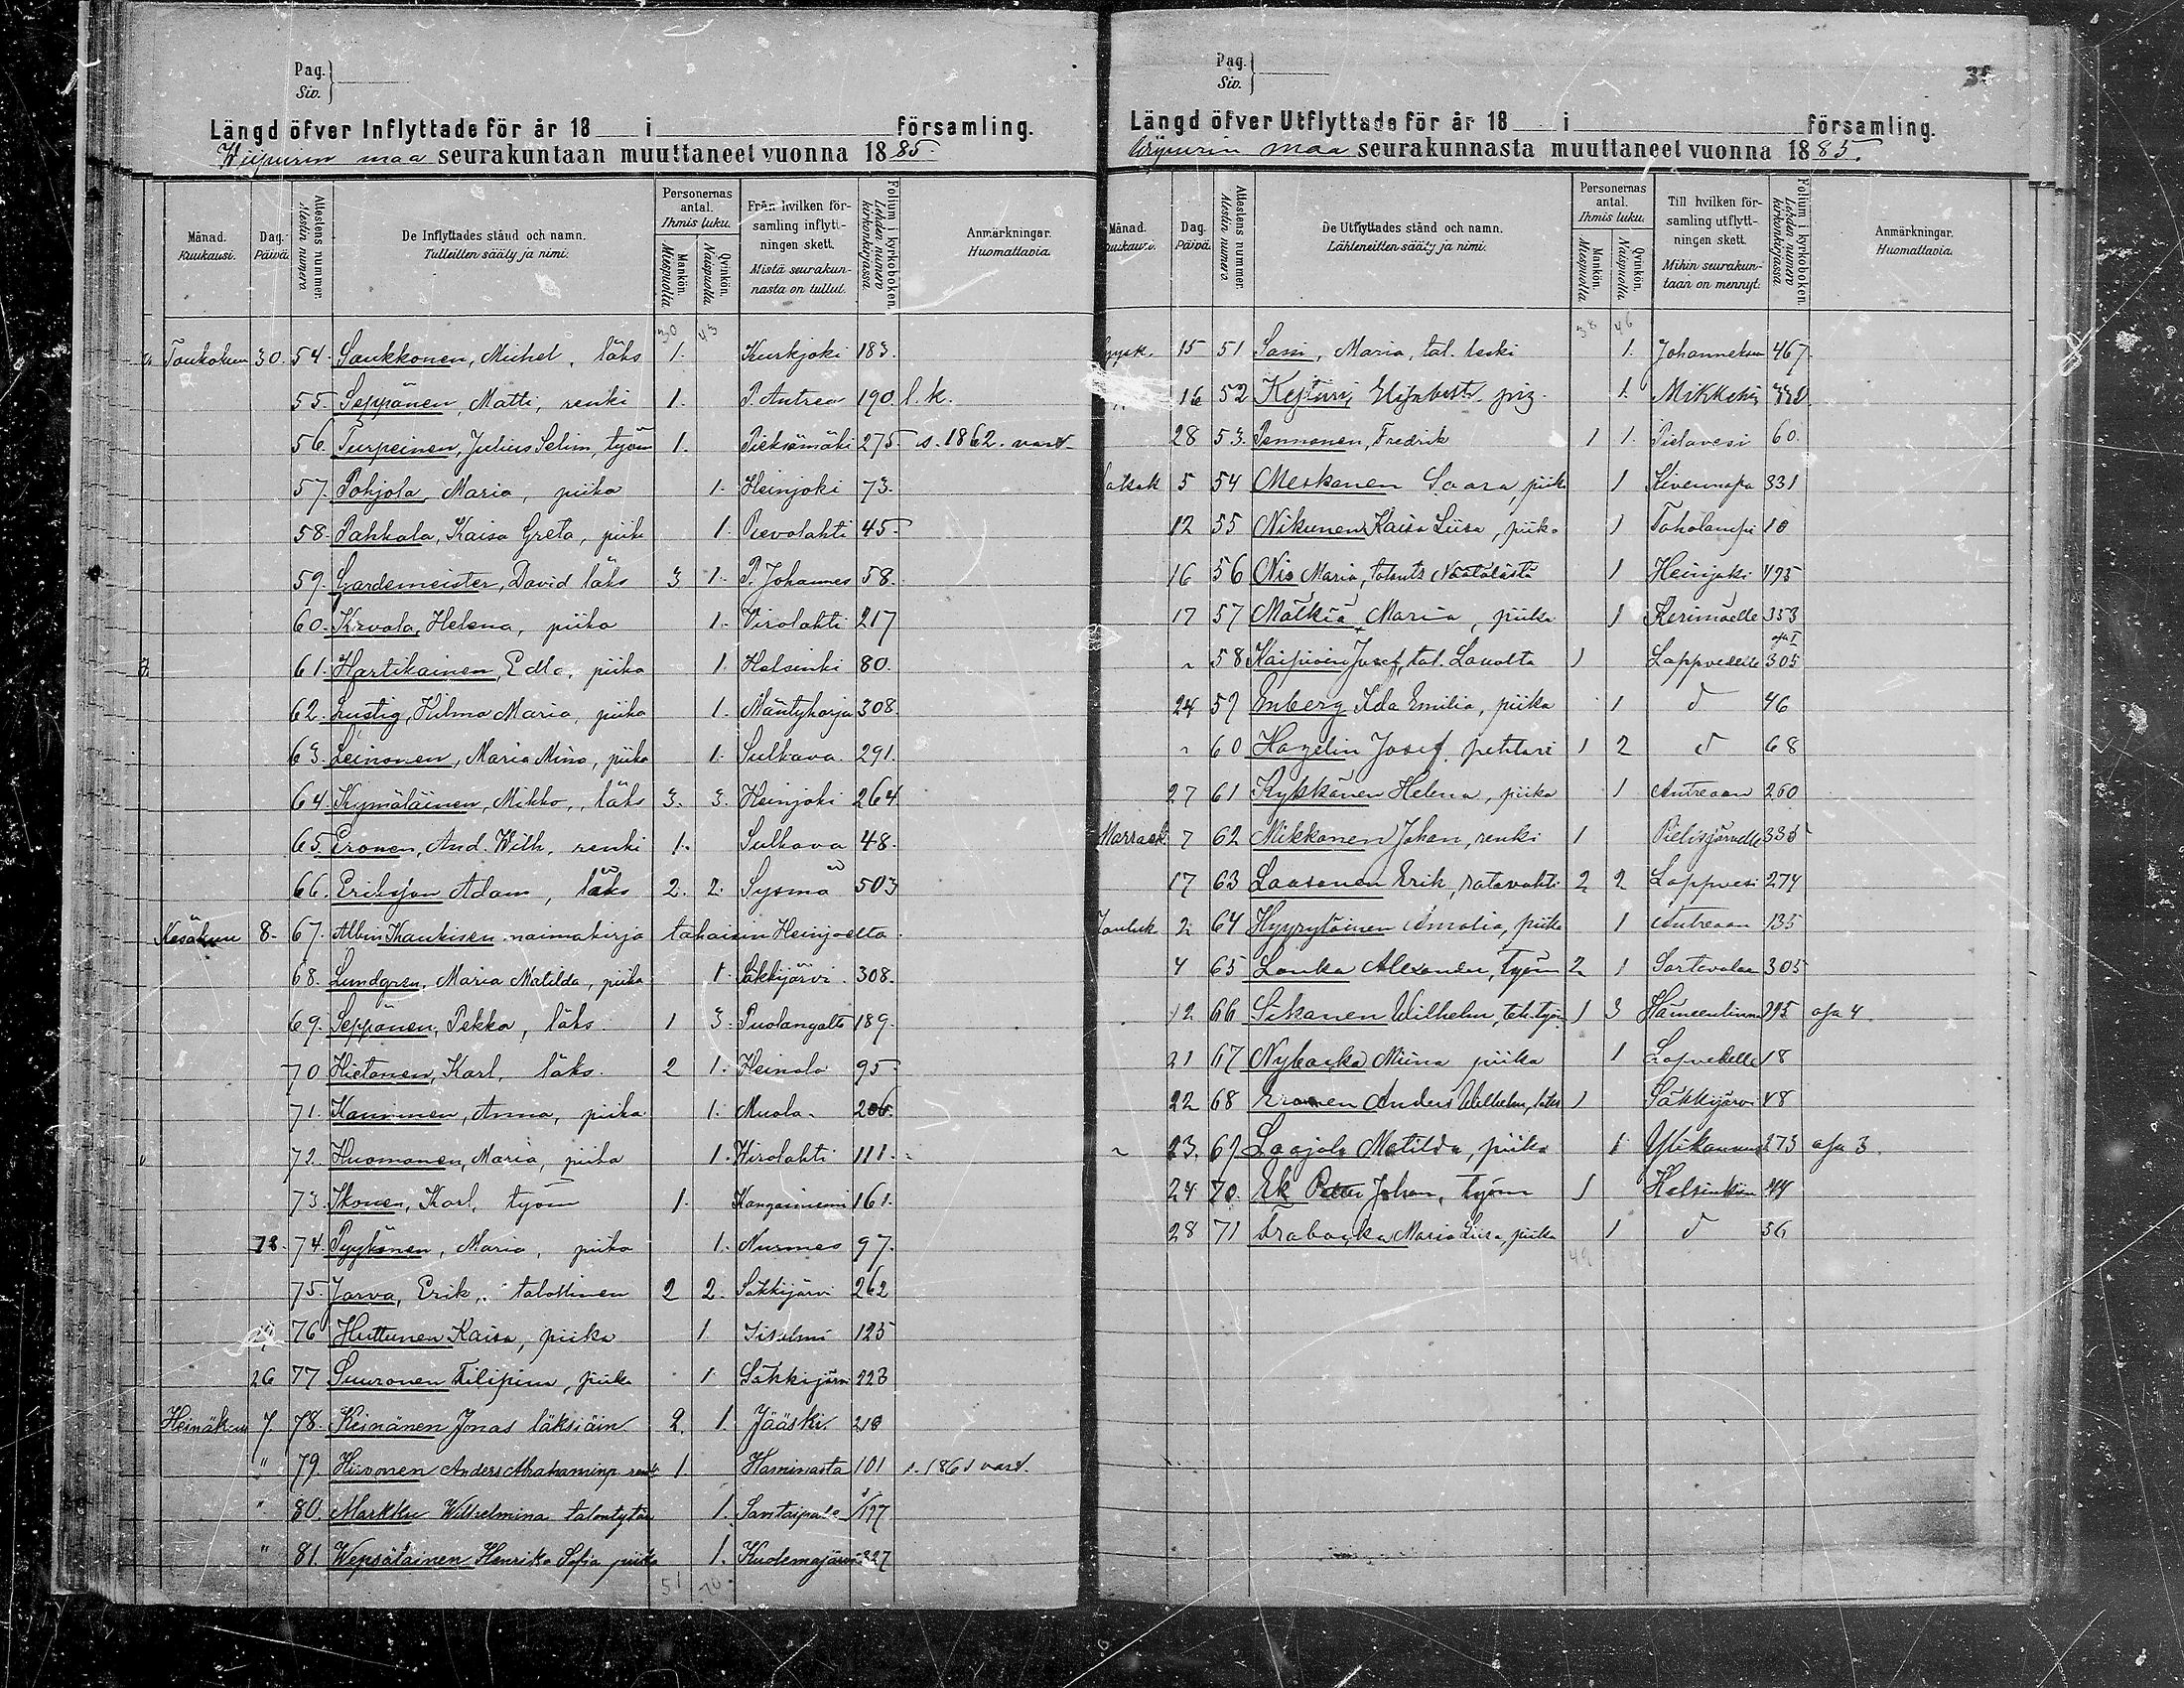 Pag.
Siv.
Längd öfver Inflyttade för år 18 i församling.
Wiipurin maa seurakuntaan muuttaneet vuonna 1885.
Månad. Kuukausi.
Dag. Päivä.
Attestens nummer. Atestin numero
De Inflyttades stånd och namn. Tulleitten sääty ja nimi.
Personernas antal. Ihmis luku.
Mankön. Miespuolia
Qvinkön. Naispuolia
Från hvilken församling inflyttningen skett. Mistä seurakunnasta on tullut.
Folium i kyrkoboken. Lehden numero kirkonkirjassa
Anmärkningar. Huomattavia.
30 43
Toukokuu 30. 54. Saukkonen, Michel, läks 1. Kurkjoki 183.
55. Seppänen, Matti, renki 1. P. Antrea 190. l.k.
56. Turpeinen, Julius Selim, työm 1. Pieksämäki 275 s. 1862. vard
57. Pohjola, Maria, piika 1. Heinjoki 73.
58. Pahkala, Kaisa Greta, piika 1. Revolahti 45
59. Gardemeister, David läks 3 1. P. Johannes 58.
60. Kirvola, Helena, piika 1. Virolahti 217
61. Hartikainen, Edla, piika 1. Helsinki 80.
62. Lustig, Hilma Maria, piika 1. Mäntyharju 308
63. Leinonen, Maria Mina, piika 1. Sulkava 291.
64. Kymäläinen, Mikko, läks 3. 3. Heinjoki 264
65. Eronen, And. Wilh, renki 1. Sulkava 48.
66. Eriksson Adam, läks 2. 2. Sysmä 503
Kesäkuu 8. 67. Albin Kaukisen naimakirja takaisin Heinjoelta.
68. Lundgren, Maria Matilda, piika 1. Säkkijärvi. 308.
69. Seppänen, Pekka, läks 1 3. Puolangalta 189.
70 Hietanen, Karl, läks. 2 1. Heinola 95
71. Kaninen, Anna, piika 1. Muola. 206.
72. Huomonen, Maria, piika 1. Wirolahti 111.
73. Ikonen, Karl, työm 1. Kangasniemi 161.
18. 74. Pyykönen, Maria, piika 1. Nurmes 97.
75. Jarva, Erik, talollinen 2 2. Säkkijärvi 262
76 Huttunen Kaisa, piika 1 Iisalmi 125
26 77 Suuronen Filipina, piika 1 Säkkijärvi 223
Heinäkuu 7. 78. Keinänen Jonas läksiäin 2. 1. Jääski 210
" 79. Hirvonen Anders Abrahaminp. renk 1. Haminasta 101 s. 1861 vard.
" 80. Markku Wilhelmina talontytär 1. Savitaipale 177
" 81. Wepsäläinen Henrika Sofia piika 1. Kuolemajärvi 327
51 70
Pag.
Siv.
Längd öfver Utflyttade för år 18 i församling.
Wiipurin maa seurakunnasta muuttaneet vuonna 1885.
Månad. Kuukausi.
Dag. Päivä.
Attestens nummer. Atestin numero
De Utflyttades stånd och namn. Lähteneitten sääty ja nimi.
Personernas antal. Ihmis luku.
Mankön. Miespuolia
Qvinkön. Naispuolia
Till hvilken församling utflyttningen skett. Mihin seurakuntaan on mennyt.
Folium i kyrkoboken. Lehden numero kirkonkirjassa
Anmärkningar. Huomattavia.
38 46
Syysk. 15 51 Sassi, Maria, tal. leski 1. Johanneksen 467
16 52 Kejturi, Elisabeth. piig. 1. Mikkeliin
28 53. Pennonen, Fredrik 1 1. Pielavesi 60.
Lokak 5 54 Meskanen Saara, piik 1 Kivennapa 331
12 55 Nikunen Kaisa Liisa, piika 1 Toholampi 10
16 56 Nio Maria, talontr Näätälästä 1 Heinjoki 495
17 57 Mälkiä Maria, piika 1 Kerimäelle 353
" 58 Kaipiain Josef, tal. Lavolta 1 Lappvedelle 305 osa I
24 59 Emberg Ida Emilia, piika 1 d 46
" 60 Hagelin Josef. pehtori 1 2 d 68
27 61 Kykkänen Helena, piika 1 Antreaan 260
Marrask 7 62 Mikkonen Johan, renki 1 Pielisjärvelle 335
17 63 Laasonen Erik, ratavahti 2 2 Lappvesi 274
Jouluk 2 64 Hyyryläinen Amalia, piika 1 Antreaan 135
4 65 Lonka Alexander, Työm 2 1 Sortavalaan 305
12 66 Sikanen Wilhelm, teh. työm 1 3 Hämeenlinna 195 osa 4.
21 67 Nybacka Miina piika 1 Lapvedelle 18
22 68 Eronen Anders Wilhelm, läks 1 Säkkijärvi 48
" 23. 69 Laajola Matilda, piika 1 Ylikannus 273 osa 3.
24 70. Ek Petter Johan, Työm 1 Helsinkiin 44
28 71 Brabacka Maria Liisa, piika 1 d 56
49